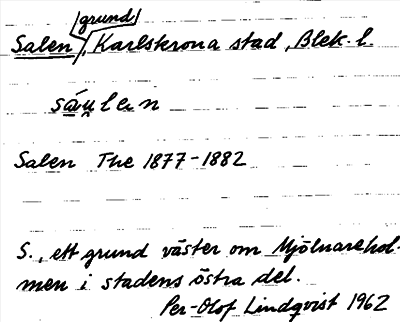 grund
Salen, Karlskrona stad, Blek. l.
Salen The 1877-1882
S., ett grund väster om Mjölnarehol-
men i stadens östra del.
Per-Olof Lindqvist 1962